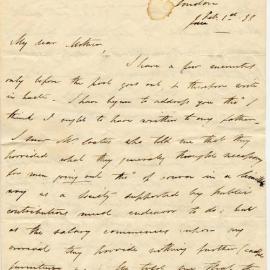 London
Feb. 1st 38
My dear Mother,
I have a few minutes
only before the post goes out & therefore write
in haste. I have begun to address you tho' I
think I ought to have written to my father.
I saw Mr Coates who told me that they
provided what they generally thought necessary
for men going out tho' of course in a
way as a Society supported by public
contributions must endeavor to do; but
as the salary commences upon my
arrival they provide nothing further /
furniture He told me that the